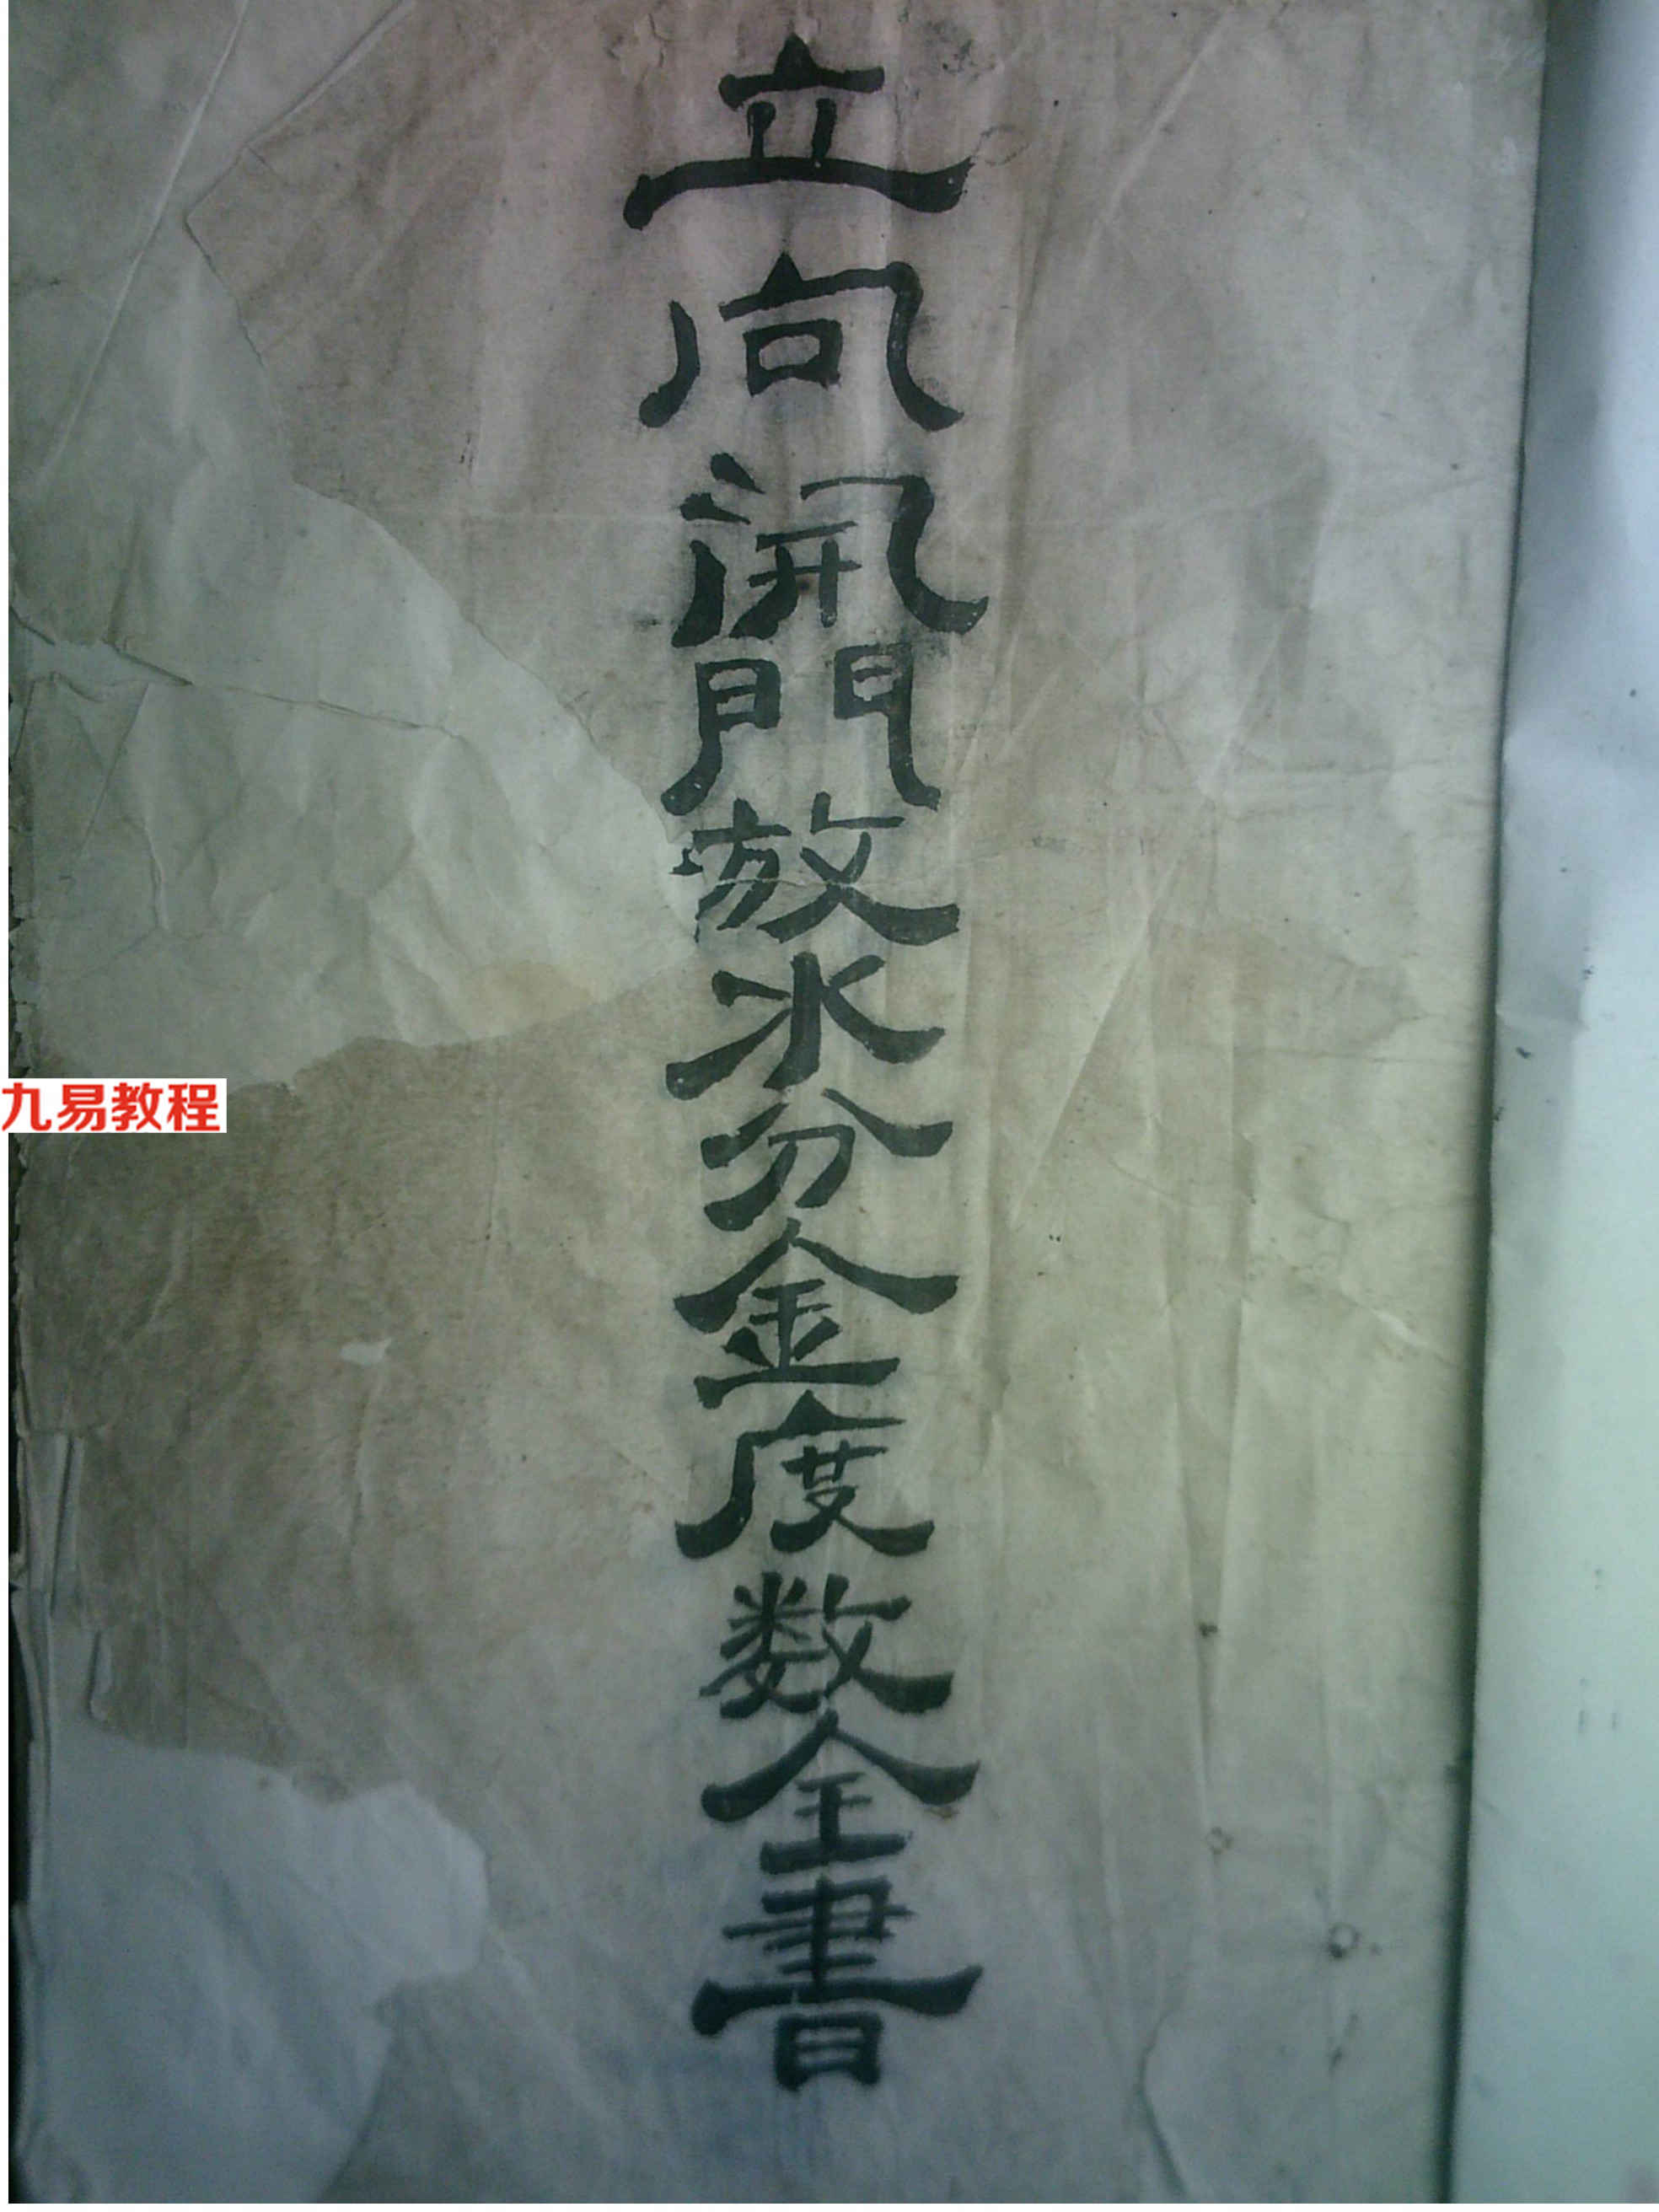 立向開門放水分金度数全書
九易教程